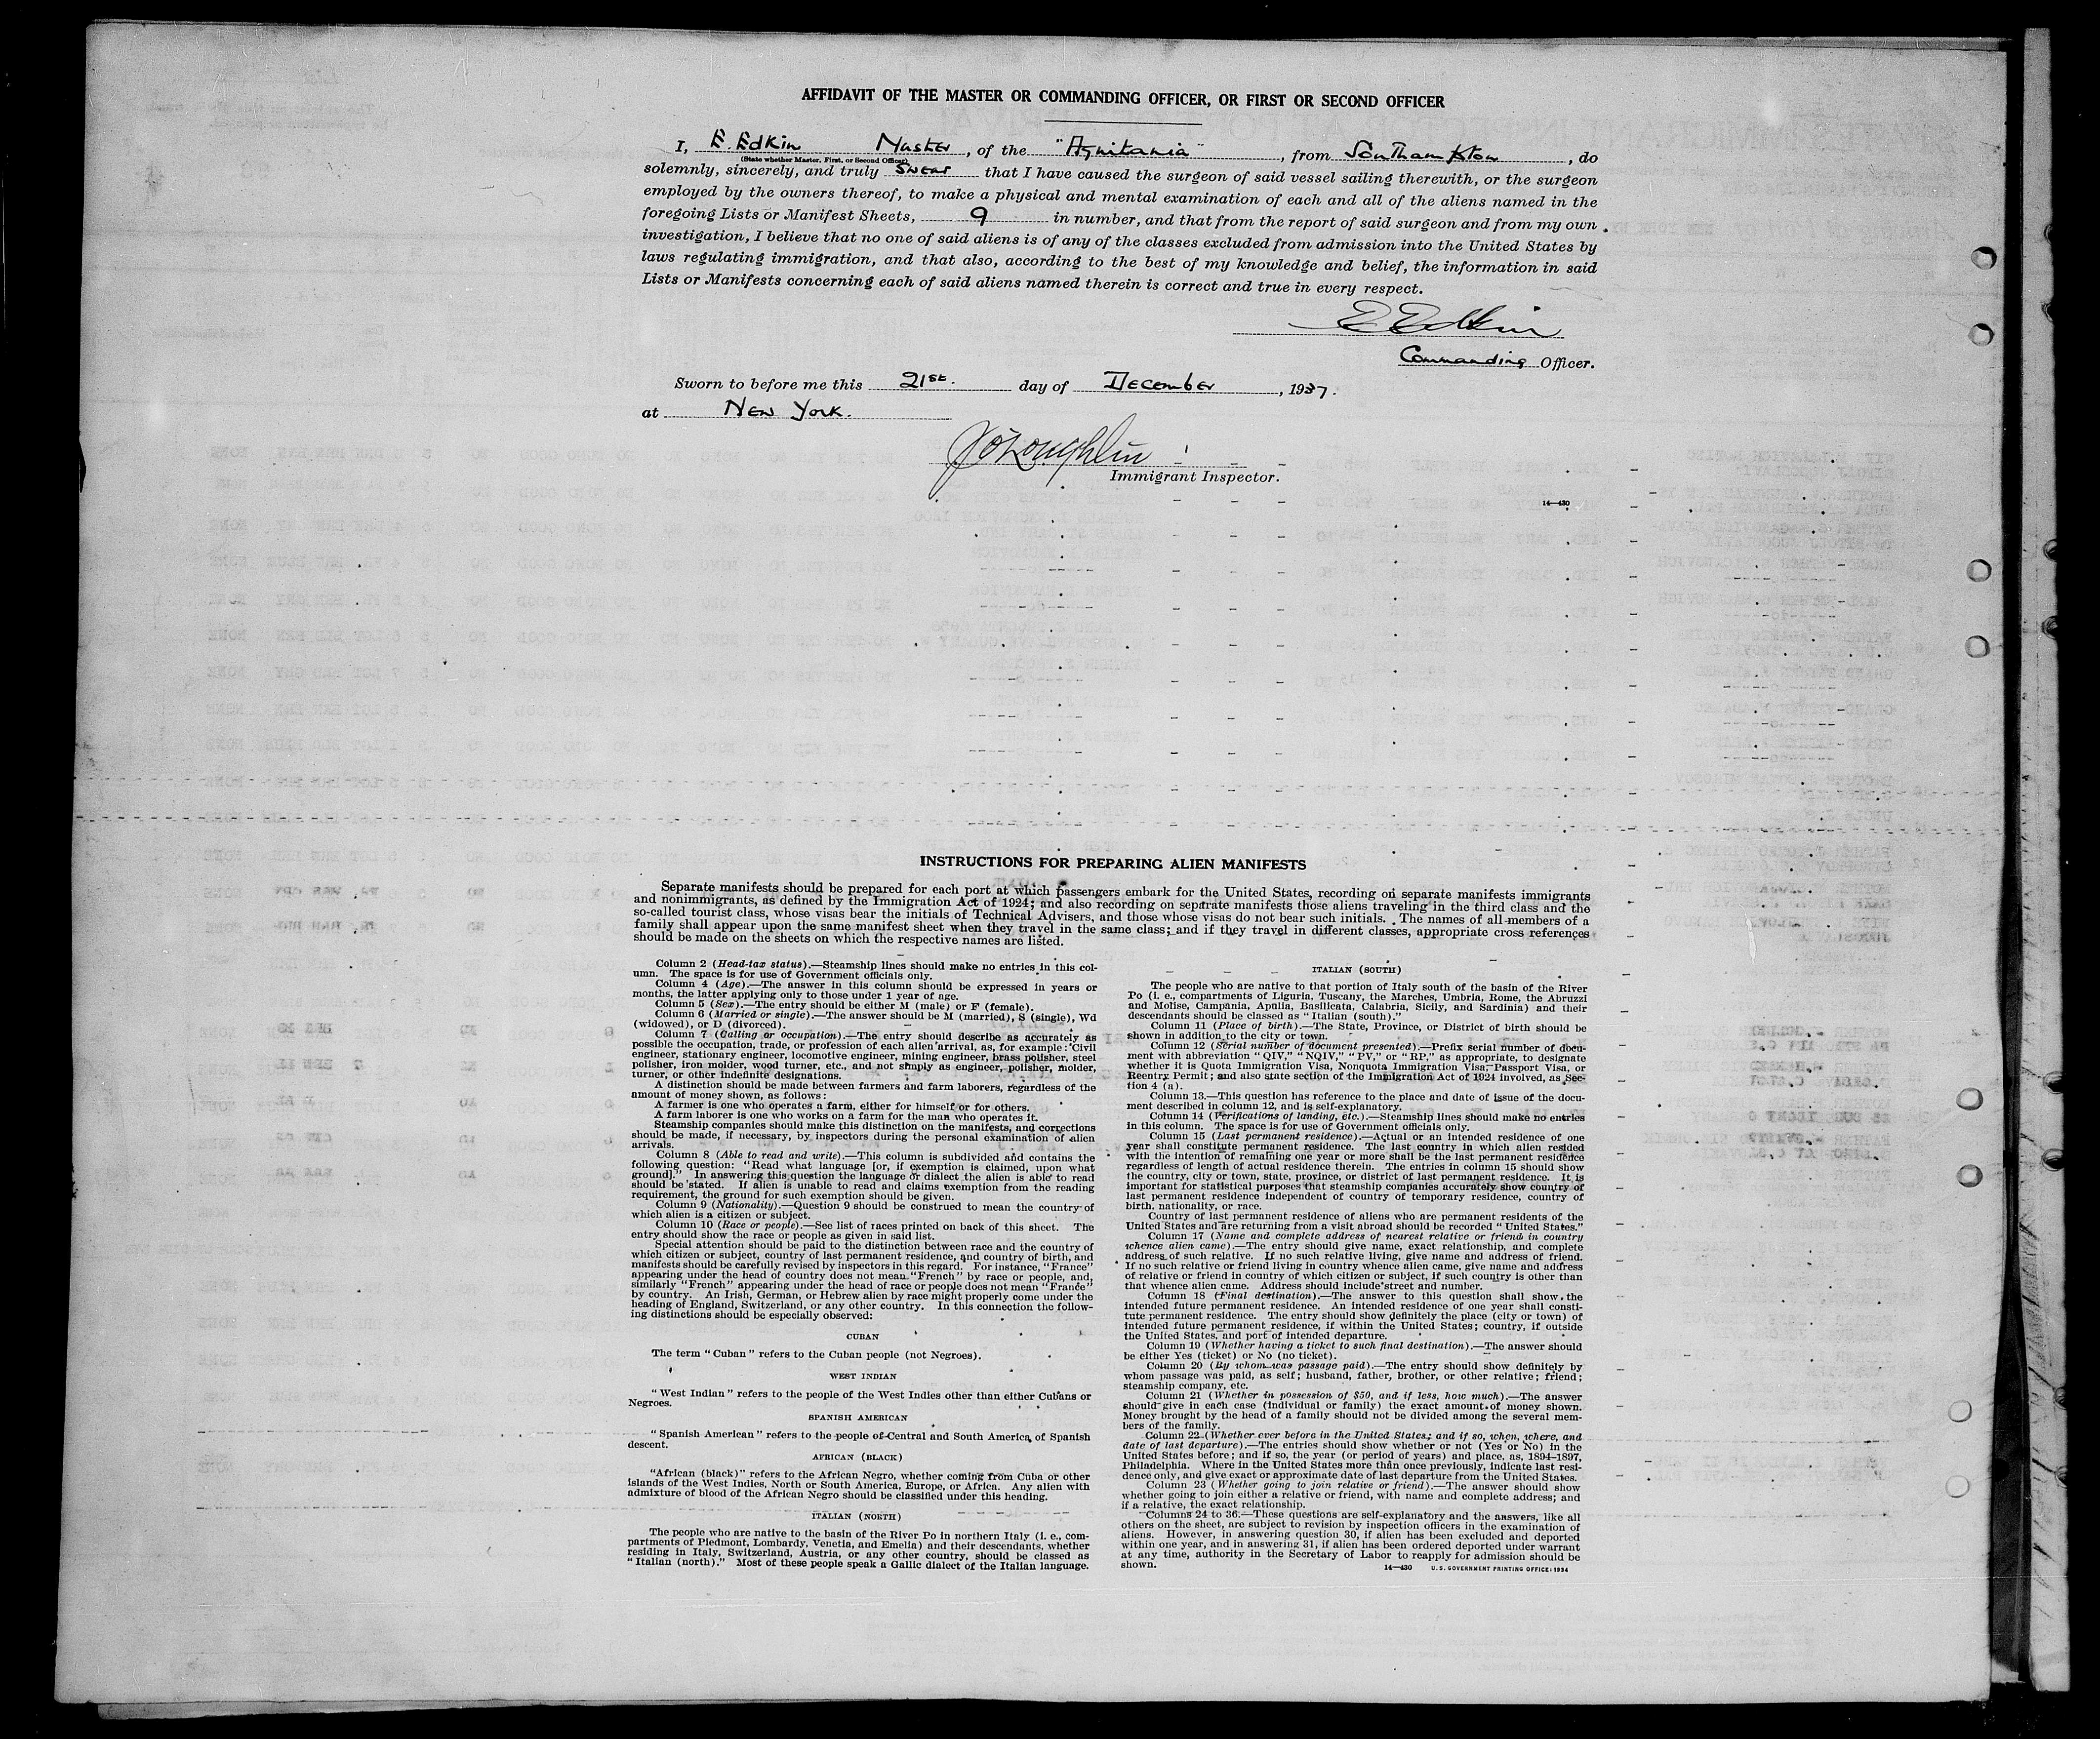 AFFIDAVIT OF THE MASTER OR COMMANDING OFFICER, OR FIRST OR SECOND OFFICER
I, E. Edkin Master, of the "Aquitania", from Southampton, do
(State whether Master, First, or Second Officer)
solemnly, sincerely, and truly Swear that I have caused the surgeon of said vessel sailing therewith, or the surgeon
employed by the owners thereof, to make a physical and mental examination of each and all of the aliens named in the
foregoing Lists or Manifest Sheets, 9 in number, and that from the report of said surgeon and from my own
investigation, I believe that no one of said aliens is of any of the classes excluded from admission into the United States by
laws regulating immigration, and that also, according to the best of my knowledge and belief, the information in said
Lists or Manifests concerning each of said aliens named therein is correct and true in every respect.
E Edkin
Commanding Officer.
Sworn to before me this 21st. day of December, 1937.
at New York.
Immigrant Inspector.
14—430
INSTRUCTIONS FOR PREPARING ALIEN MANIFESTS
Separate manifests should be prepared for each port at which passengers embark for the United States, recording on separate manifests immigrants
and nonimmigrants, as defined by the Immigration Act of 1924; and also recording on separate manifests those aliens traveling in the third class and the
so-called tourist class, whose visas bear the initials of Technical Advisers, and those whose visas do not bear such initials. The names of all members of a
family shall appear upon the same manifest sheet when they travel in the same class; and if they travel in different classes, appropriate cross references
should be made on the sheets on which the respective names are listed.
Column 2 (Head-tax status).—Steamship lines should make no entries in this col-
umn. The space is for use of Government officials only.
Column 4 (Age).—The answer in this column should be expressed in years or
months, the latter applying only to those under 1 year of age.
Column 5 (Sex).—The entry should be either M (male) or F (female).
Column 6 (Married or single).—The answer should be M (married), S (single), Wd
(widowed), or D (divorced).
Column 7 (Calling or occupation).—The entry should describe as accurately as
possible the occupation, trade, or profession of each alien arrival, as, for example: Civil
engineer, stationary engineer, locomotive engineer, mining engineer, brass polisher, steel
polisher, iron molder, wood turner, etc., and not simply as engineer, polisher, molder,
turner, or other indefinite designations.
A distinction should be made between farmers and farm laborers, regardless of the
amount of money shown, as follows:
A farmer is one who operates a farm, either for himself or for others.
A farm laborer is one who works on a farm for the man who operates it.
Steamship companies should make this distinction on the manifests, and corrections
should be made, if necessary, by inspectors during the personal examination of alien
arrivals.
Column 8 (Able to read and write).—This column is subdivided and contains the
following question: "Read what language [or, if exemption is claimed, upon what
ground]." In answering this question the language or dialect the alien is able to read
should be stated. If alien is unable to read and claims exemption from the reading
requirement, the ground for such exemption should be given.
Column 9 (Nationality).—Question 9 should be construed to mean the country of
which alien is a citizen or subject.
Column 10 (Race or people).—See list of races printed on back of this sheet. The
entry should show the race or people as given in said list.
Special attention should be paid to the distinction between race and the country of
which citizen or subject, country of last permanent residence, and country of birth, and
manifests should be carefully revised by inspectors in this regard. For instance, "France"
appearing under the head of country does not mean "French" by race or people, and,
similarly "French" appearing under the head of race or people does not mean "France"
by country. An Irish, German, or Hebrew alien by race might properly come under the
heading of England, Switzerland, or any other country. In this connection the follow-
ing distinctions should be especially observed:
CUBAN
The term "Cuban" refers to the Cuban people (not Negroes).
WEST INDIAN
"West Indian" refers to the people of the West Indies other than either Cubans or
Negroes.
SPANISH AMERICAN
"Spanish American" refers to the people of Central and South America, of Spanish
descent.
AFRICAN (BLACK)
"African (black)" refers to the African Negro, whether coming from Cuba or other
islands of the West Indies, North or South America, Europe, or Africa. Any alien with
admixture of blood of the African Negro should be classified under this heading.
ITALIAN (NORTH)
The people who are native to the basin of the River Po in northern Italy (i. e., com-
partments of Piedmont, Lombardy, Venetia, and Emelia) and their descendants, whether
residing in Italy, Switzerland, Austria, or any other country, should be classed as
"Italian (north)." Most of these people speak a Gallic dialect of the Italian language.
ITALIAN (SOUTH)
The people who are native to that portion of Italy south of the basin of the River
Po (i. e., compartments of Liguria, Tuscany, the Marches, Umbria, Rome, the Abruzzi
and Molise, Campania, Apulia, Basilicata, Calabria, Sicily, and Sardinia) and their
descendants should be classed as "Italian (south)."
Column 11 (Place of birth).—The State, Province, or District of birth should be
shown in addition to the city or town.
Column 12 (Serial number of document presented).—Prefix serial number of docu-
ment with abbreviation "QIV," "NQIV," "PV," or "RP," as appropriate, to designate
whether it is Quota Immigration Visa, Nonquota Immigration Visa, Passport Visa, or
Reentry Permit; and also state section of the Immigration Act of 1924 involved, as Sec-
tion 4 (a).
Column 13.—This question has reference to the place and date of issue of the docu-
ment described in column 12, and is self-explanatory.
Column 14 (Verifications of landing, etc.).—Steamship lines should make no entries
in this column. The space is for use of Government officials only.
Column 15 (Last permanent residence).—Actual or an intended residence of one
year shall constitute permanent residence. The last country in which alien resided
with the intention of remaining one year or more shall be the last permanent residence
regardless of length of actual residence therein. The entries in column 15 should show
the country, city or town, state, province, or district of last permanent residence. It is
important for statistical purposes that steamship companies accurately show country of
last permanent residence independent of country of temporary residence, country of
birth, nationality, or race.
Country of last permanent residence of aliens who are permanent residents of the
United States and are returning from a visit abroad should be recorded "United States."
Column 17 (Name and complete address of nearest relative or friend in country
whence alien came).—The entry should give name, exact relationship, and complete
address of such relative. If no such relative living, give name and address of friend.
If no such relative or friend living in country whence alien came, give name and address
of relative or friend in country of which citizen or subject, if such country is other than
that whence alien came. Address should include street and number.
Column 18 (Final destination).—The answer to this question shall show the
intended future permanent residence. An intended residence of one year shall consti-
tute permanent residence. The entry should show definitely the place (city or town) of
intended future permanent residence, if within the United States; country, if outside
the United States, and port of intended departure.
Column 19 (Whether having a ticket to such final destination).—The answer should
be either Yes (ticket) or No (no ticket).
Column 20 (By whom was passage paid).—The entry should show definitely by
whom passage was paid, as self; husband, father, brother, or other relative; friend;
steamship company, etc.
Column 21 (Whether in possession of $50, and if less, how much).—The answer
should give in each case (individual or family) the exact amount of money shown.
Money brought by the head of a family should not be divided among the several mem-
bers of the family.
Column 22 (Whether ever before in the United States; and if so, when, where, and
date of last departure).—The entries should show whether or not (Yes or No) in the
United States before; and if so, the year (or period of years) and place, as, 1894–1897,
Philadelphia. Where in the United States more than once previously, indicate last resi-
dence only, and give exact or approximate date of last departure from the United States.
Column 23 (Whether going to join relative or friend).—The answer should show
whether going to join either a relative or friend, with name and complete address; and
if a relative, the exact relationship.
Columns 24 to 36.—These questions are self-explanatory and the answers, like all
others on the sheet, are subject to revision by inspection officers in the examination of
aliens. However, in answering question 30, if alien has been excluded and deported
within one year, and in answering 31, if alien has been ordered deported under warrant
at any time, authority in the Secretary of Labor to reapply for admission should be
shown.
14—430 U.S. GOVERNMENT PRINTING OFFICE: 1934